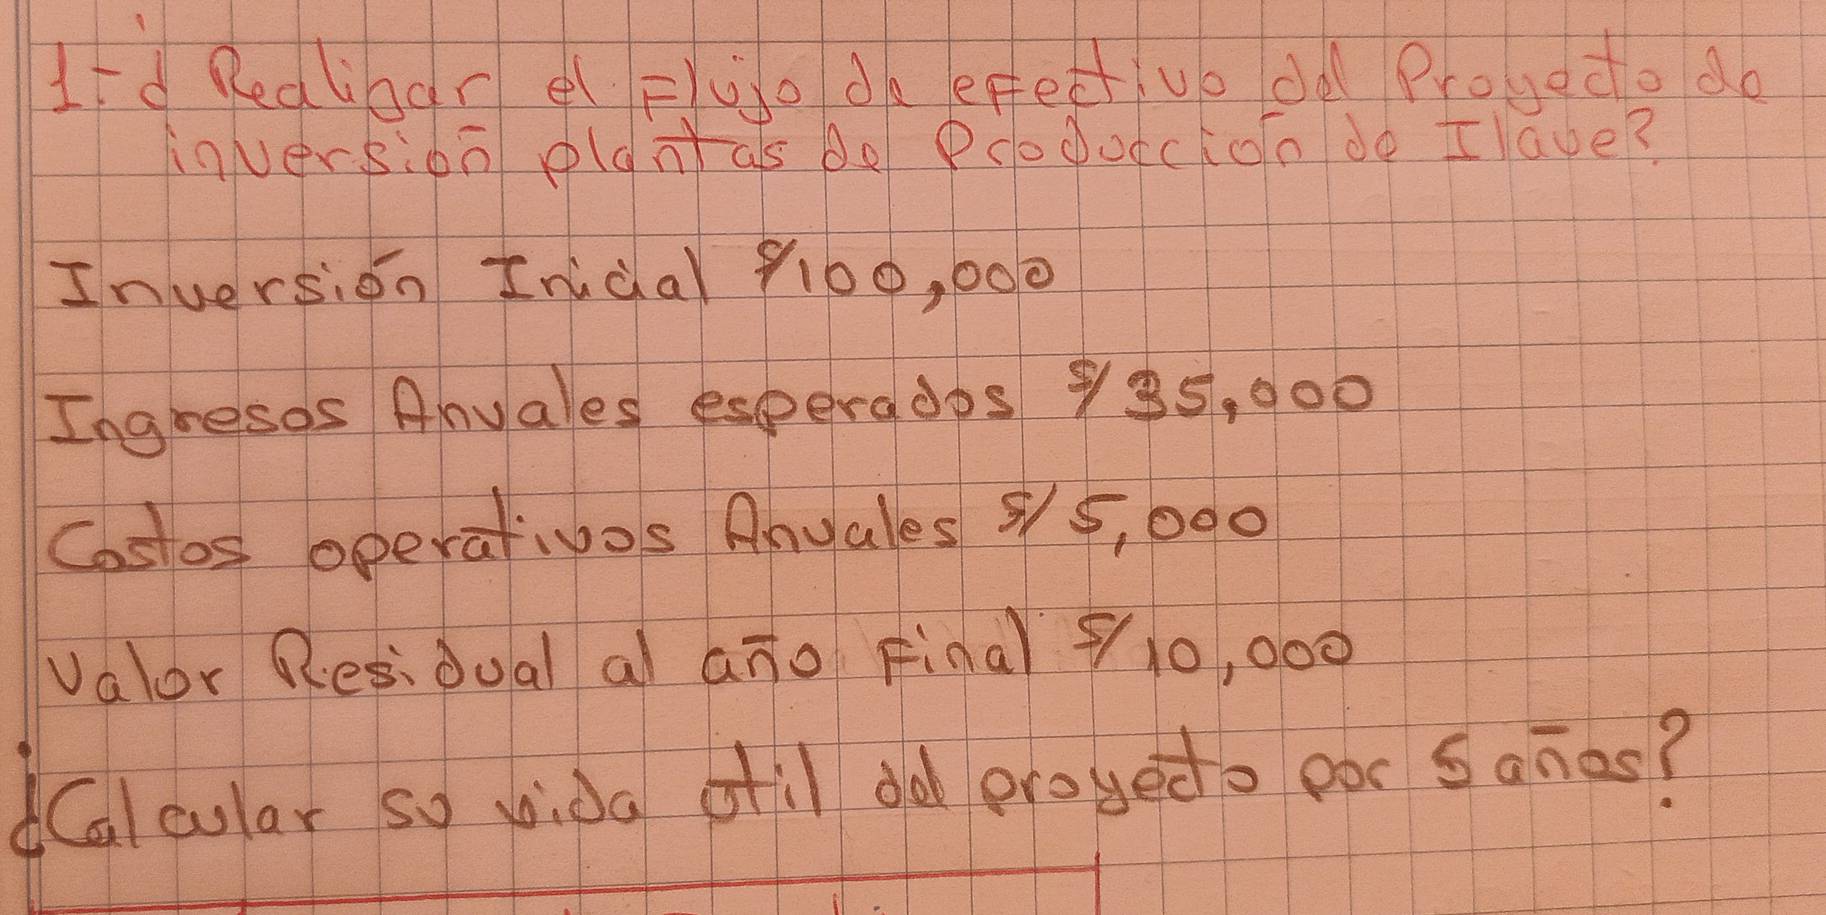 1-¿ Realizar el Flujo de efectivo del Proyecto de
inversión plantas de Producción de Ilave?
Inversión Inicial S/100,000
Ingresos Anuales esperados S/35,000
Costos operativos Anuales S/ 5,000
Valor Residual al año Final S/10,000
¿Calcular su vida útil del proyecto por 5 años?